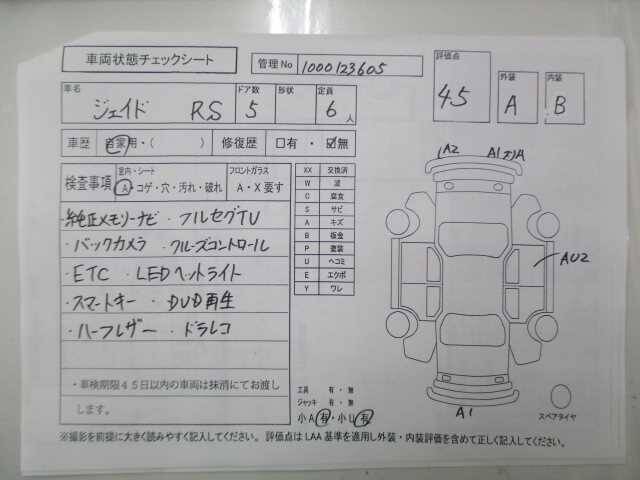 車両状態チェックシート
管理No 1000123605
評価点 4.5
外装 A
内装 B
車名 ジェイド RS
ドア数 5
形状
定員 6人
車歴 自家用・( )
修復歴 □有・☑無
検査事項
室内・シート
A・コゲ・穴・汚れ・破れ
フロントガラス
A・X要す
・純正メモリーナビ ・フルセグTV
・バックカメラ ・クルーズコントロール
・ETC ・LEDヘットライト
・スマートキー ・DVD再生
・ハーフレザー ・ドラレコ
・車検期限45日以内の車両は抹消にてお渡し
します。
XX 交換済
W 波
C 腐食
S サビ
A キズ
B 板金
P 塗装
U ヘコミ
E エクボ
Y ワレ
A2
AU2
A1
工具 有・無
ジャッキ 有・無
小A有・小U有
スペアタイヤ
※撮影を前提に大きく読みやすく記入してください。評価点はLAA基準を適用し外装・内装評価を含めて正しく記入してください。